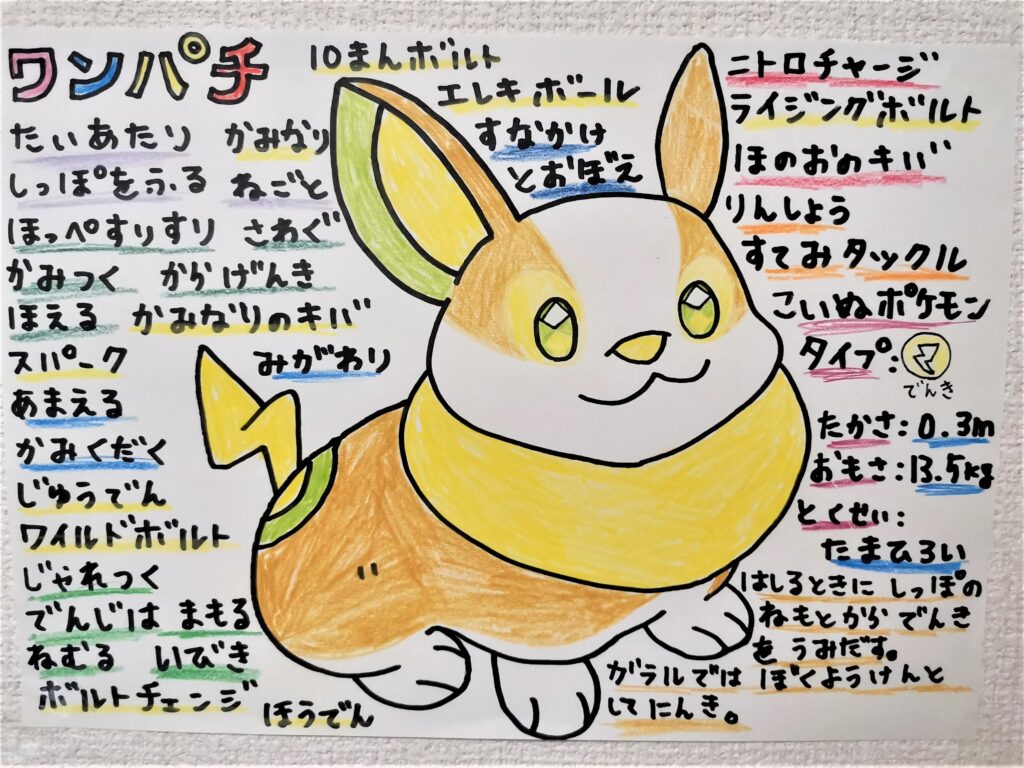 ワンパチ
10まんボルト
エレキボール
すなかけ
とおぼえ
たいあたり かみなり
しっぽをふる ねごと
ほっぺすりすり さわぐ
かみつく からげんき
ほえる かみなりのキバ
スパーク みがわり
あまえる
かみくだく
じゅうでん
ワイルドボルト
じゃれつく
でんじは まもる
ねむる いびき
ボルトチェンジ
ほうでん
ニトロチャージ
ライジングボルト
ほのおのキバ
りんしょう
すてみタックル
こいぬポケモン
タイプ:
でんき
たかさ: 0.3m
おもさ: 13.5kg
とくせい:
たまひろい
はしるときに しっぽの
ねもとから でんき
を うみだす。
ガラルでは ぼくようけんと
して にんき。